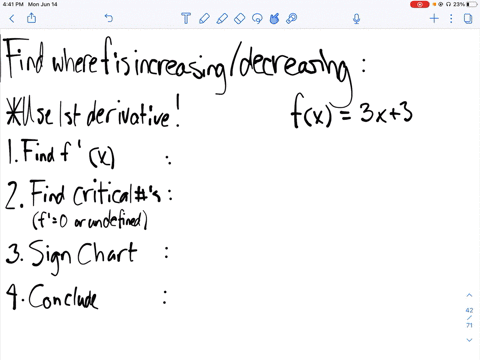 4:41 PM Mon Jun 14
23%
Find where f is increasing/decreasing :
*Use 1st derivative!
f(x) = 3x+3
1. Find f'(x) :
2. Find critical #'s :
(f'=0 or undefined)
3. Sign Chart :
4. Conclude :
42
/
71